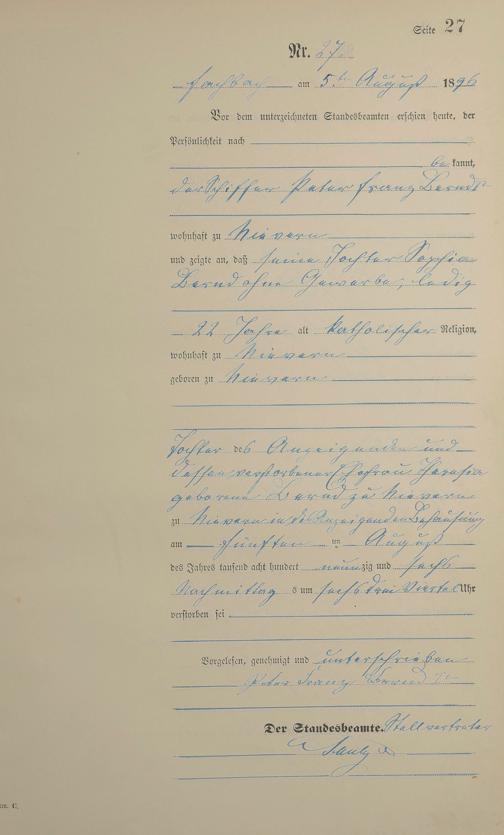 Seite 27
Nr. 27
Fachbach am 5ten August 1896
Vor dem unterzeichneten Standesbeamten erschien heute, der
Persönlichkeit nach
be kannt,
der Schiffer Peter Franz Bernd
wohnhaft zu Nievern
und zeigte an, daß seine Tochter Sophia
Bernd ohne Gewerbe, ledig
22 Jahre alt katholischer Religion,
wohnhaft zu Nievern
geboren zu Nievern
Tochter des Anzeigenden und
dessen verstorbenen Ehefrau Theresia
geborene Bernd zu Nievern
zu Nievern in des Anzeigenden Behausung
am fünften ten August
des Jahres tausend acht hundert neunzig und sechs
Nachmittag s um sechs drei Viertel Uhr
verstorben sei
Vorgelesen, genehmigt und unterschrieben
Peter Franz Bernd
Der Standesbeamte. Stellvertreter